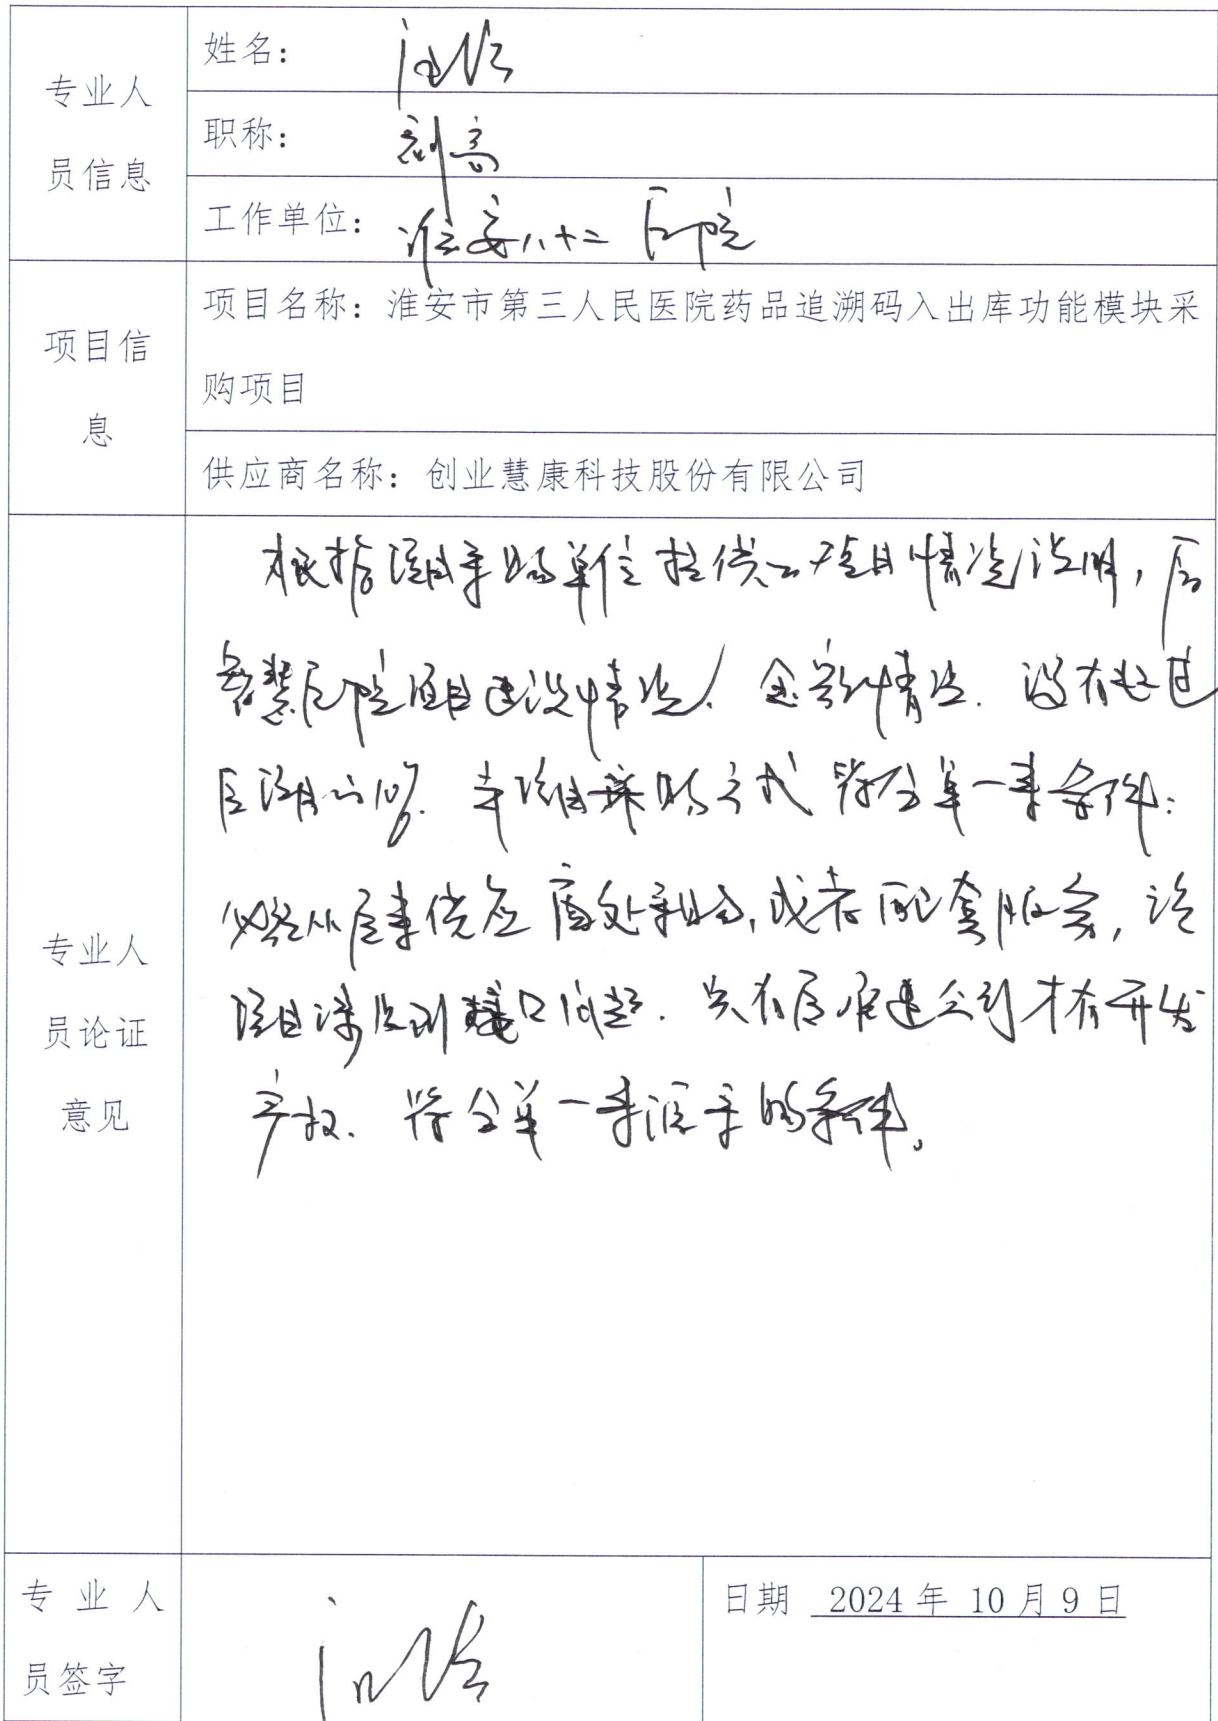 专业人员信息
姓名：
职称：副高
工作单位：淮安八十二医院
项目信息
项目名称：淮安市第三人民医院药品追溯码入出库功能模块采
购项目
供应商名称：创业慧康科技股份有限公司
专业人员论证意见
根据项目采购单位提供的项目情况说明，原
智慧医院项目建设情况、金额情况．没有超过
原项目的10%．本项目采购方式符合单一来条件：
必须从原来供应商处采购，或者配套服务，该
项目涉及到接口问题．只有原承建公司才有开发
产权．符合单一来源采购条件。
专业人员签字
日期 2024年 10月9日